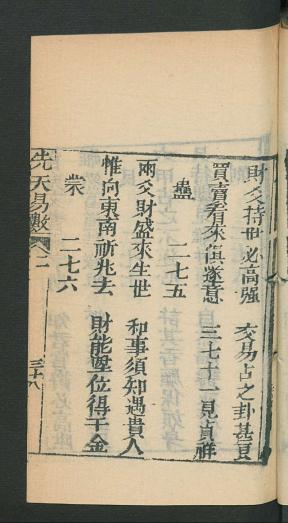 財爻持世必高強　交易占之卦甚良
買賣看來俱遂意　三七十一見貞祥
蠱　二七五
兩爻財盛來生世　和事須知遇貴人
惟向東南祈兆去　財能陞位得千金
蒙　二七六
先天易數 卷二 三十八